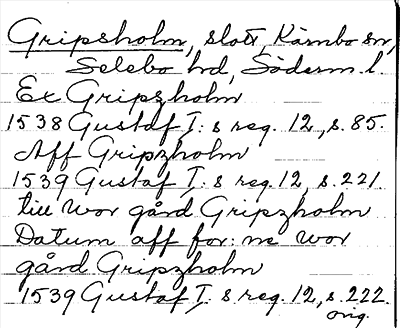 Gripsholm, slott, Kärnbo sn,
Selebo hd, Söderm. l.
Ex Gripzholm
1538 Gustaf I: s reg. 12, s. 85.
Aff Gripzholm
1539 Gustaf I: s reg. 12, s. 221.
till wor gård Gripzholm
Datum aff for: ne wor
gård Gripzholm
1539 Gustaf I: s reg. 12, s. 222.
orig.